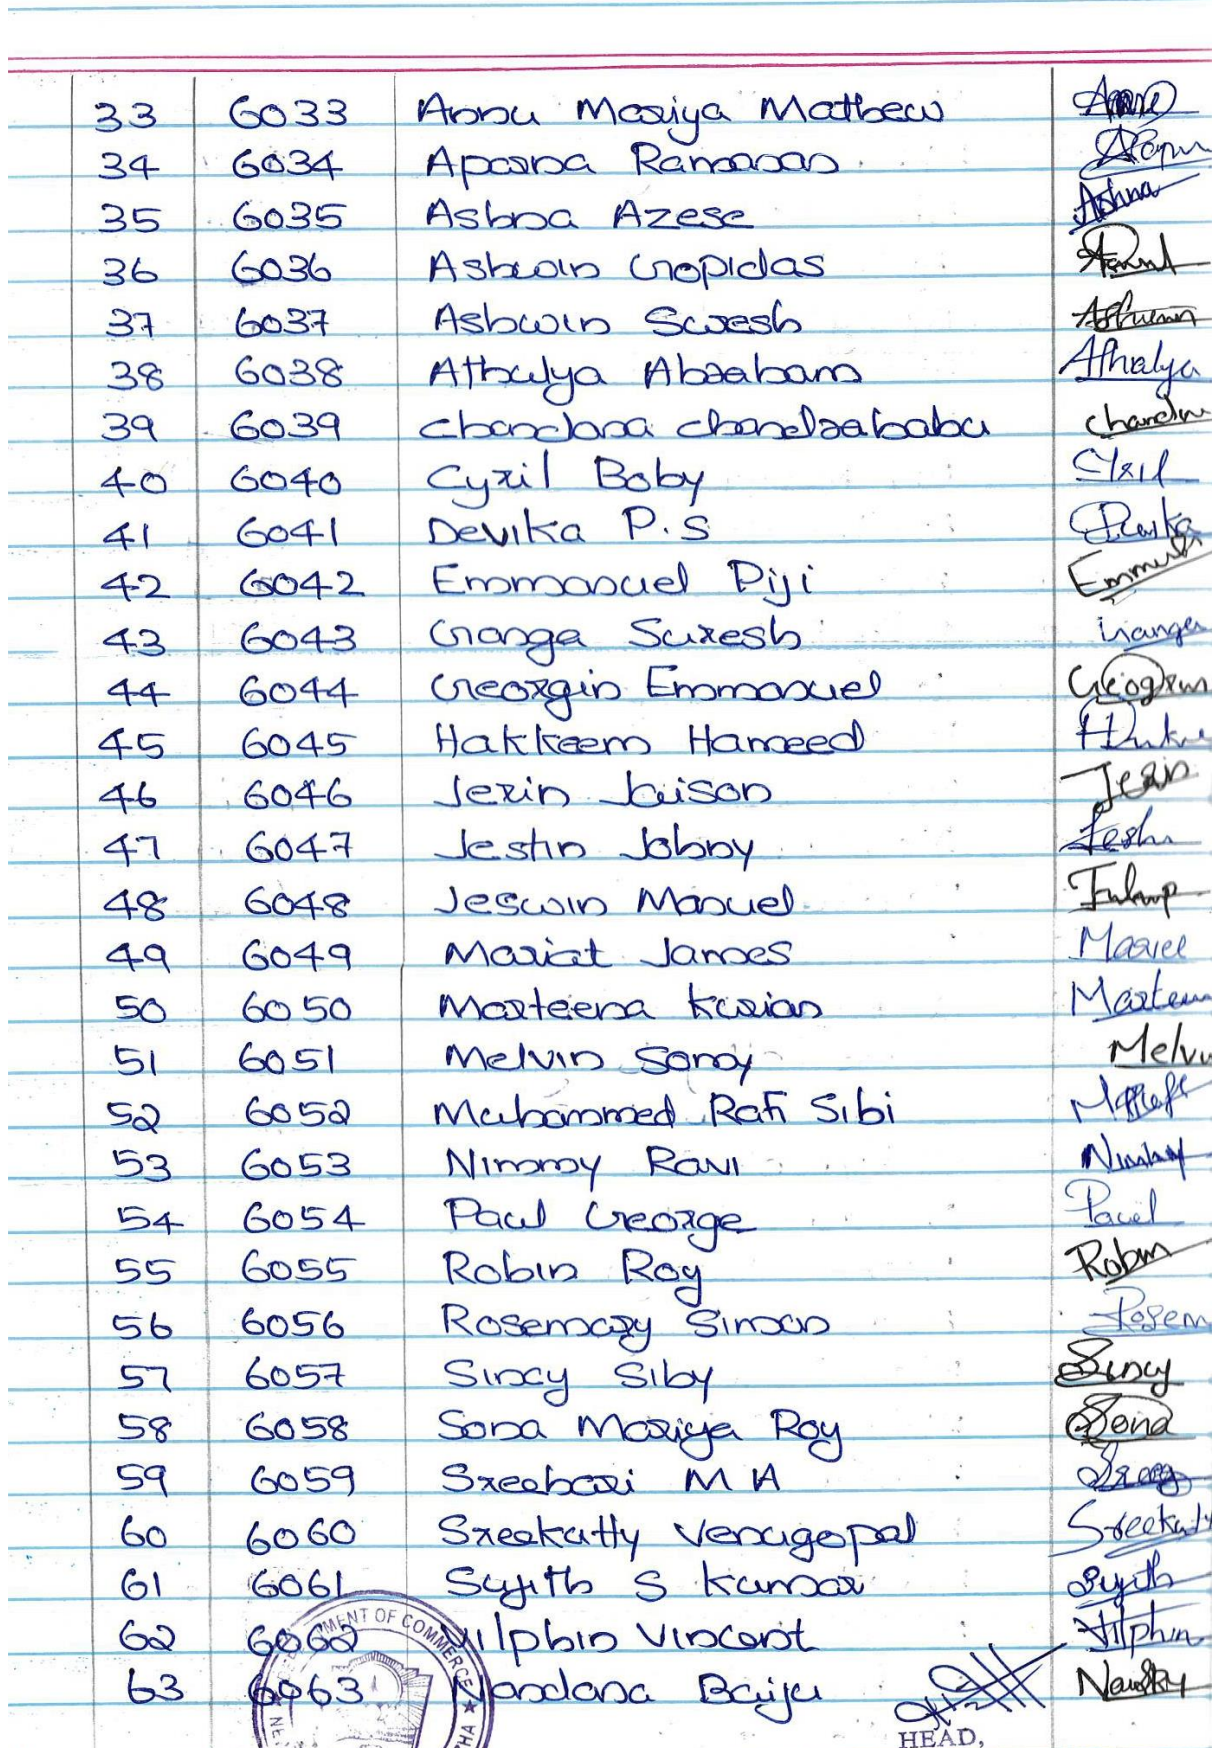 33 6033 Annu Mariya Mathew
34 6034 Aparna Ramanan
35 6035 Ashna Azese Ashna
36 6036 Ashwin Gopidas
37 6037 Ashwin Suresh
38 6038 Athulya Abraham Athulya
39 6039 Chandana Chandrababu
40 6040 Cyril Boby
41 6041 Devika P.S
42 6042 Emmanuel Diji
43 6043 Ganga Suresh Ganga
44 6044 Georgin Emmanuel
45 6045 Hakkeem Hameed
46 6046 Jerin Jaison Jerin
47 6047 Jestin Jobny
48 6048 Jeswin Manuel
49 6049 Mariat James
50 6050 Marteena Kurian
51 6051 Melvin Sonoy
52 6052 Muhammed Rafi Sibi
53 6053 Nimmy Ravi
54 6054 Paul George Paul
55 6055 Robin Roy Robin
56 6056 Rosemary Simon
57 6057 Sincy Siby Sincy
58 6058 Sona Mariya Roy Sona
59 6059 Sreehari M A
60 6060 Sreekutty Venugopal
61 6061 Sujith S Kumar Sujith
62 6062 Vilphin Vincent
63 6063 Nandana Baiju
MENT OF COMMERCE
HEAD,